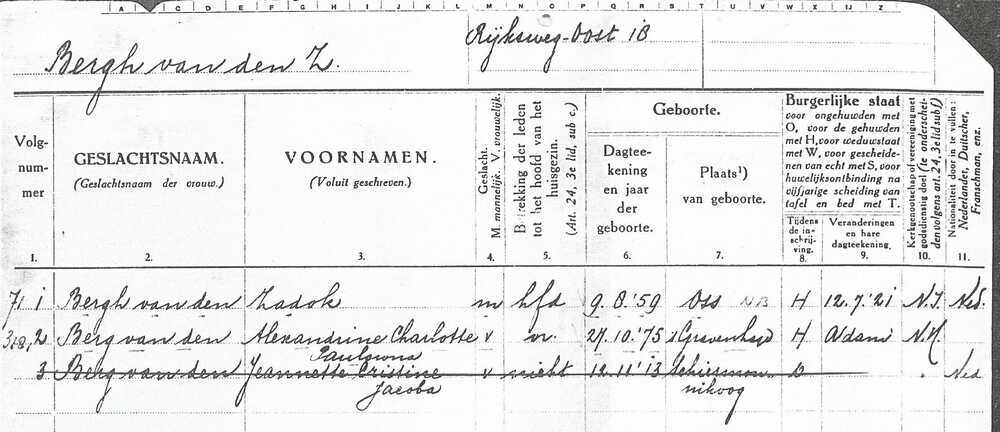 A B C D E F G H I J K L M N O P Q R S T U V W X Y Z
Bergh van den Z.
Rijksweg-Oost 1B
Volg-
num-
mer
GESLACHTSNAAM.
(Geslachtsnaam der vrouw.)
VOORNAMEN.
(Voluit geschreven.)
Geslacht.
M. mannelijk. V. vrouwelijk.
Betrekking der leden
tot het hoofd van het
huisgezin.
(Art. 24, 3e lid, sub c.)
Geboorte.
Dagtee-
kening
en jaar
der
geboorte.
Plaats¹)
van geboorte.
Burgerlijke staat
voor ongehuwden met
O, voor de gehuwden
met H, voor weduwstaat
met W, voor gescheide-
nen van echt met S, voor
huwelijksontbinding na
vijfjarige scheiding van
tafel en bed met T.
Tijdens
de in-
schrij-
ving.
Veranderingen
en hare
dagteekening.
Kerkgenootschap of vereeniging met
godsdienstig doel (te onderschei-
den volgens art. 24, 3e lid sub f)
Nationaliteit door in te vullen:
Nederlander, Duitscher,
Franschman, enz.
1. 2. 3. 4. 5. 6. 7. 8. 9. 10. 11.
71 1 Bergh van den Zadok m hfd 9.8.'59 Oss NB H 12.7.'21 N.I. Ned.
2 Berg van den Alexandrine Charlotte v vr. 27.10.'75 's Gravenhage H Adam N.H.
3 Berg van den Jeannette Cristine v nicht 12.11.'13 Schiermon- Ned
Jacoba nikoog